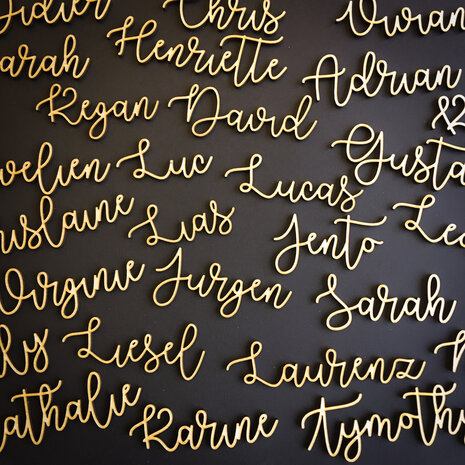 Didier Chris Vivian
Sarah Henriette Adrian
Regan David &
Evelien Luc Lucas Gusta
Ghislaine Lias Jento Lea
Virginie Jurgen Sarah
ly Liesel Laurenz
Nathalie Karine Tymothy